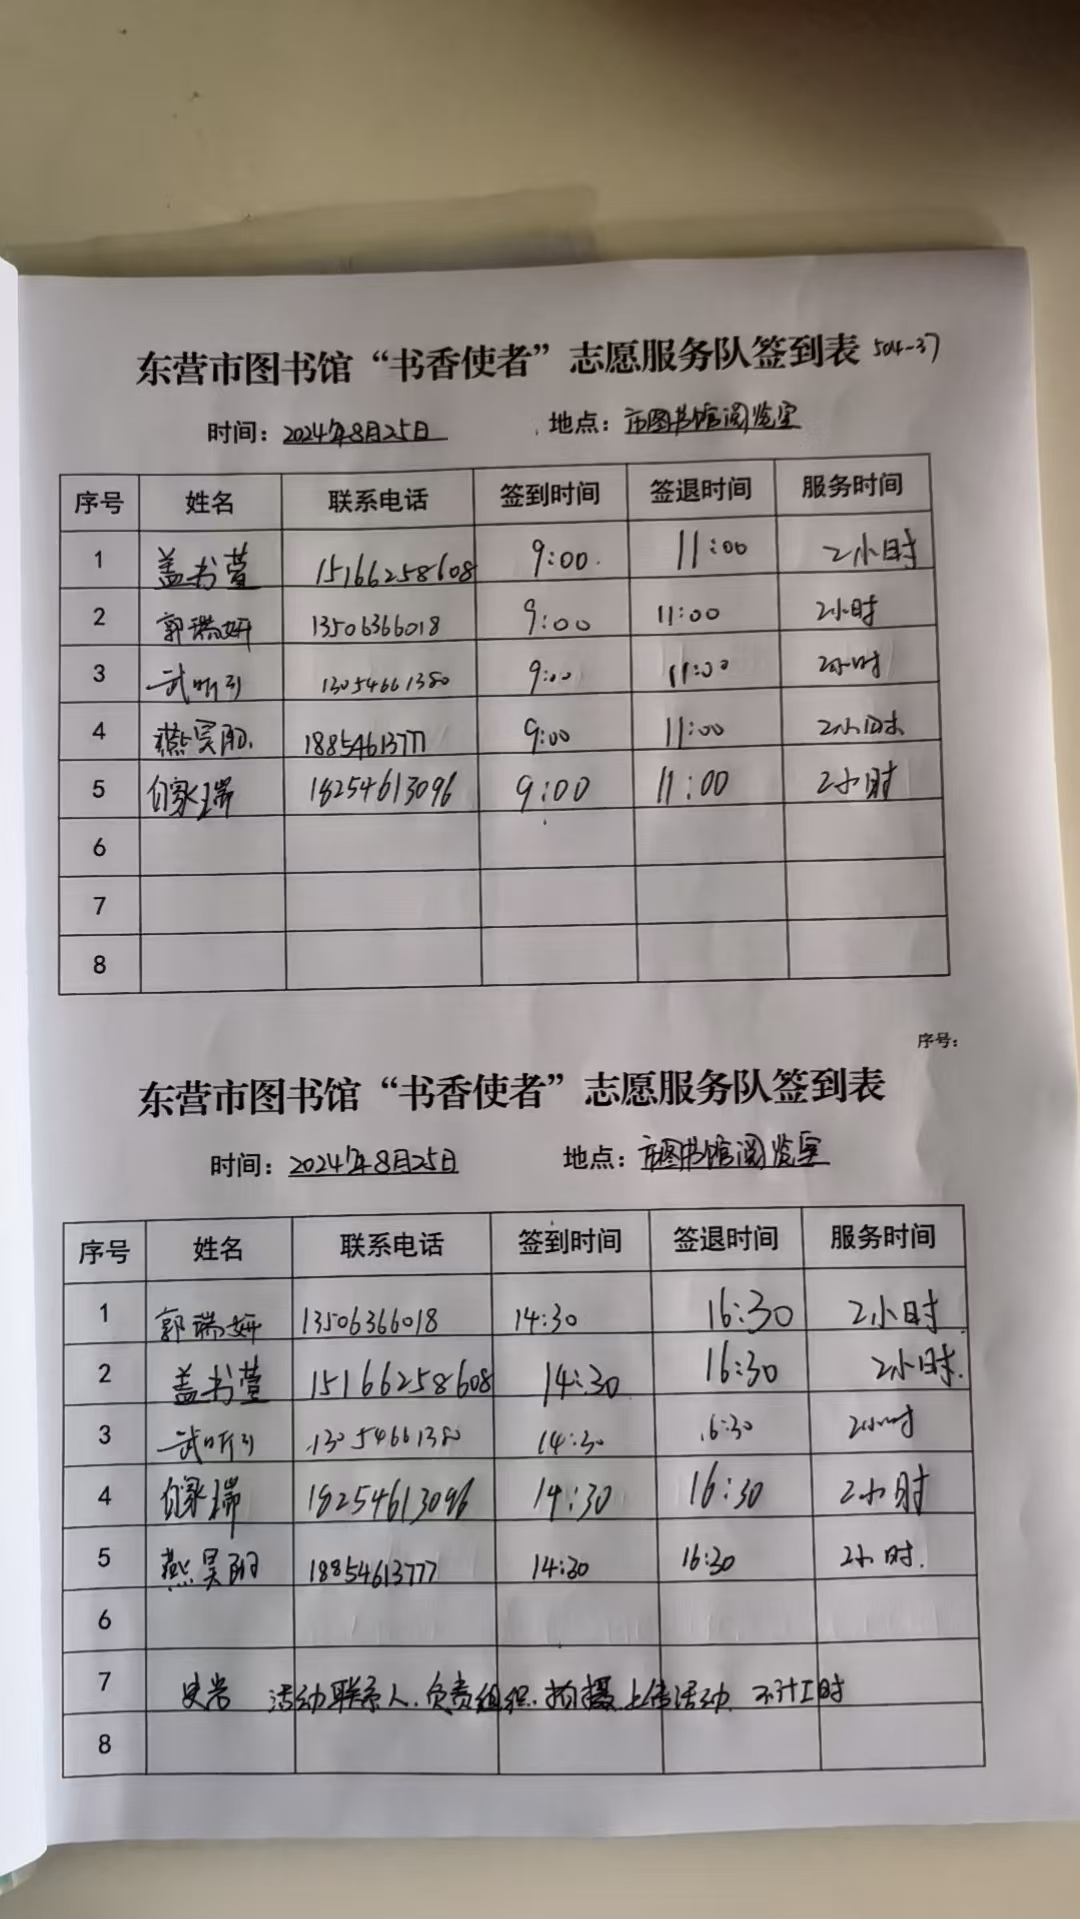 东营市图书馆“书香使者”志愿服务队签到表 504-37
时间：2024年8月25日 地点：市图书馆阅览室
序号 姓名 联系电话 签到时间 签退时间 服务时间
1 盖书萱 15166258608 9:00. 11:00 2小时
2 郭瑞妍 13506366018 9:00 11:00 2小时
3 武昕引 13054661380 9:00 11:00 2小时
4 燕昊 18854613777 9:00 11:00 2小时
5 家瑞 18254613096 9:00 11:00 2小时
6
7
8
序号：
东营市图书馆“书香使者”志愿服务队签到表
时间：2024年8月25日 地点：市图书馆阅览室
序号 姓名 联系电话 签到时间 签退时间 服务时间
1 郭瑞妍 13506366018 14:30 16:30 2小时
2 盖书萱 15166258608 14:30 16:30 2小时.
3 武昕引 13054661380 14:30 16:30 2小时
4 家瑞 18254613096 14:30 16:30 2小时
5 燕昊 18854613777 14:30 16:30 2小时.
6
7 活动联系人.负责组织.拍摄.上传活动.不计工时
8